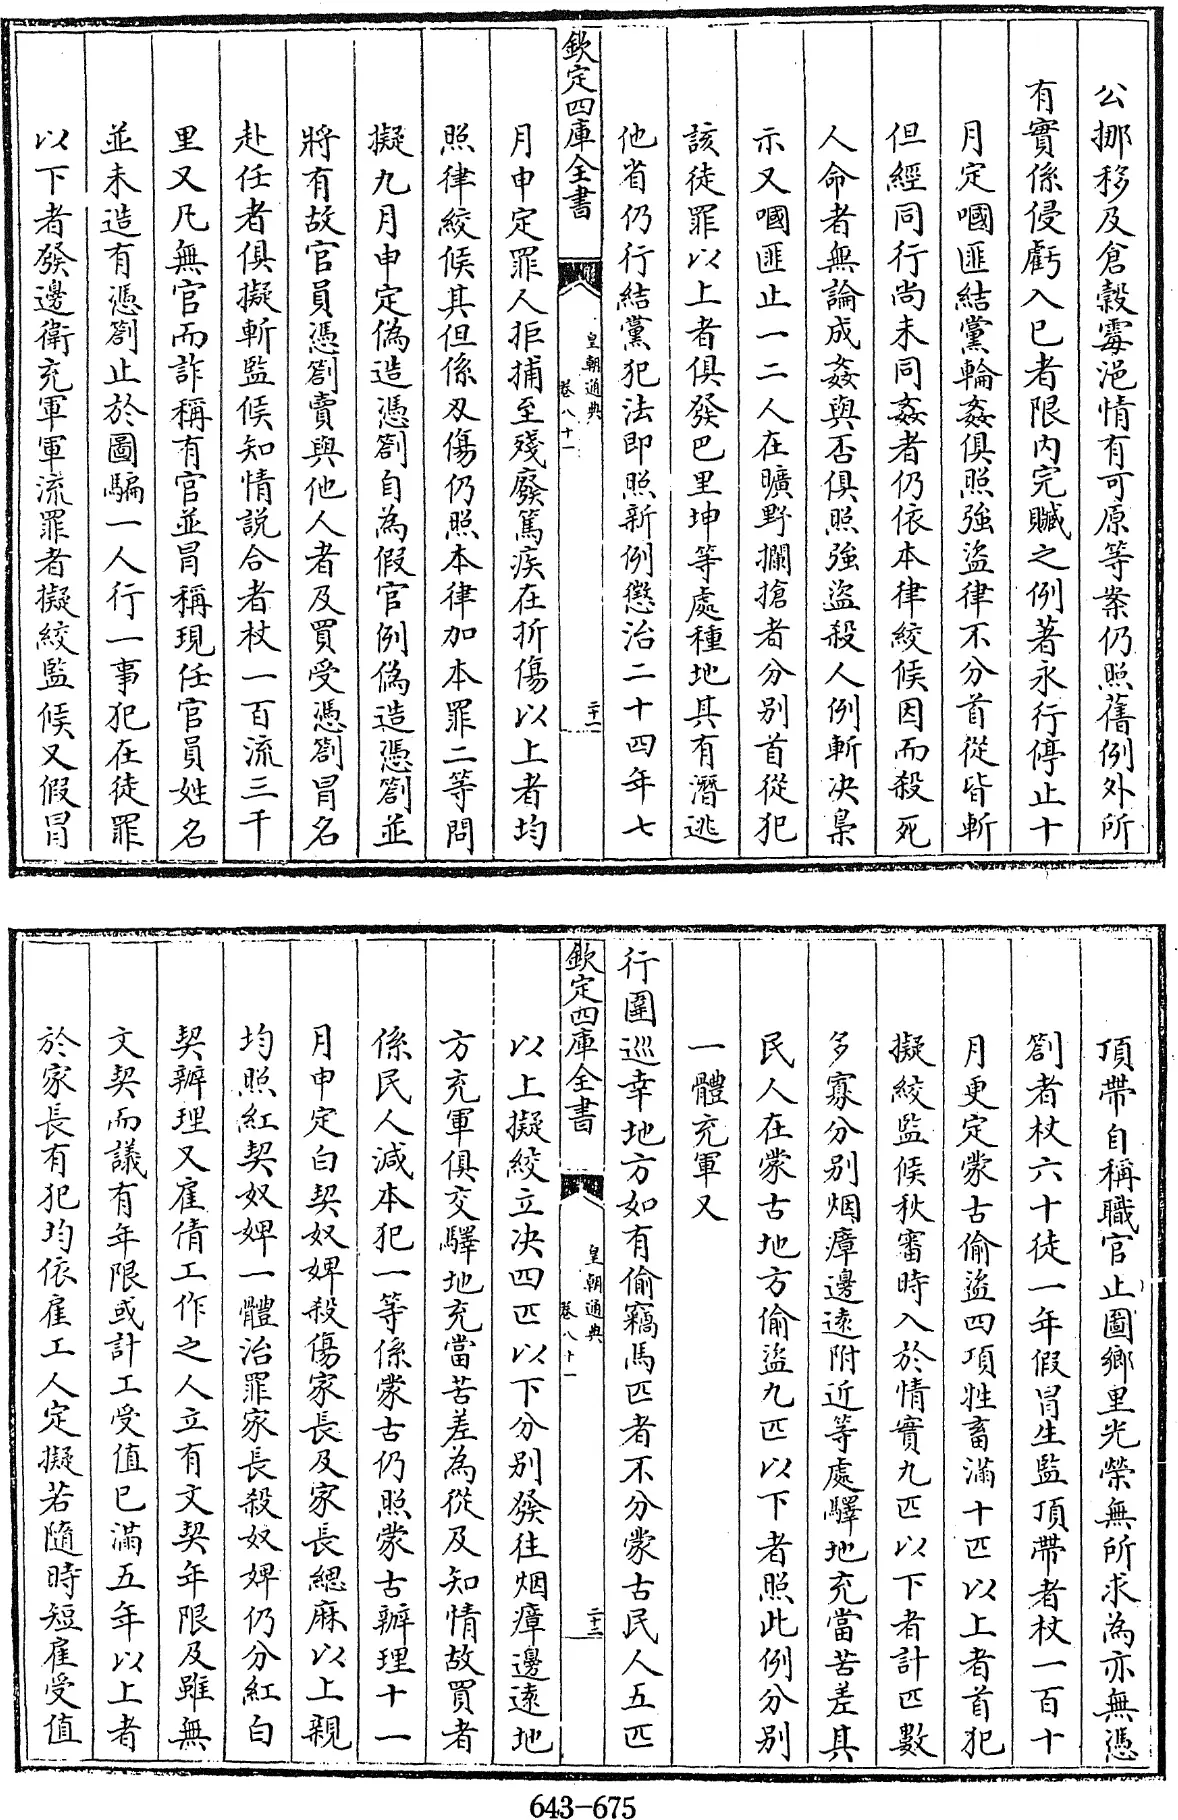 公挪移及倉穀霉浥情有可原等案仍照舊例外所
有實係侵虧入已者限内完贓之例著永行停止十
月定嘓匪結黨輪姦俱照強盜律不分首從皆斬
但經同行尚未同姦者仍依本律絞候因而殺死
人命者無論成姦與否俱照強盜殺人例斬决梟
示又嘓匪止一二人在曠野攔搶者分別首從犯
該徒罪以上者俱發巴里坤等處種地其有潛逃
他省仍行結黨犯法即照新例懲治二十四年七
欽定四庫全書
皇朝通典
卷八十一
二十一
月申定罪人拒捕至殘廢篤疾在折傷以上者均
照律絞候其但係刄傷仍照本律加本罪二等問
擬九月申定偽造憑劄自為假官例偽造憑劄並
將有故官員憑劄賣與他人者及買受憑劄冒名
赴任者俱擬斬監候知情説合者杖一百流三千
里又凡無官而詐稱有官並冒稱現任官員姓名
並未造有憑劄止於圖騙一人行一事犯在徒罪
以下者發邊衛充軍軍流罪者擬絞監候又假冒
頂帶自稱職官止圖鄉里光榮無所求為亦無憑
劄者杖六十徒一年假冒生監頂帶者杖一百十
月更定蒙古偷盜四項牲畜滿十匹以上者首犯
擬絞監候秋審時入於情實九匹以下者計匹數
多寡分別烟瘴邊遠附近等處驛地充當苦差其
民人在蒙古地方偷盜九匹以下者照此例分別
一體充軍又
行圍巡幸地方如有偷竊馬匹者不分蒙古民人五匹
欽定四庫全書
皇朝通典
卷八十一
二十二
以上擬絞立决四匹以下分別發往烟瘴邊遠地
方充軍俱交驛地充當苦差為從及知情故買者
係民人減本犯一等係蒙古仍照蒙古辦理十一
月申定白契奴婢殺傷家長及家長緦麻以上親
均照紅契奴婢一體治罪家長殺奴婢仍分紅白
契辦理又雇倩工作之人立有文契年限及雖無
文契而議有年限或計工受值已滿五年以上者
於家長有犯均依雇工人定擬若隨時短雇受值
643-675